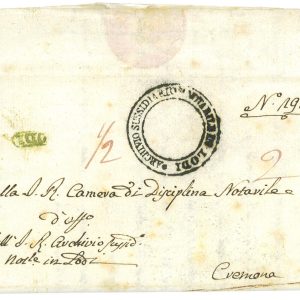 N.° 19
ARCHIVIO SUSSIDIARIO NOTARILE IN LODI
1/2
2
lla I. R. Camera di Disciplina Notarile e
d'Uff.o
I. R. Archivio Sussid.
Not.le in Lodi
Cremona